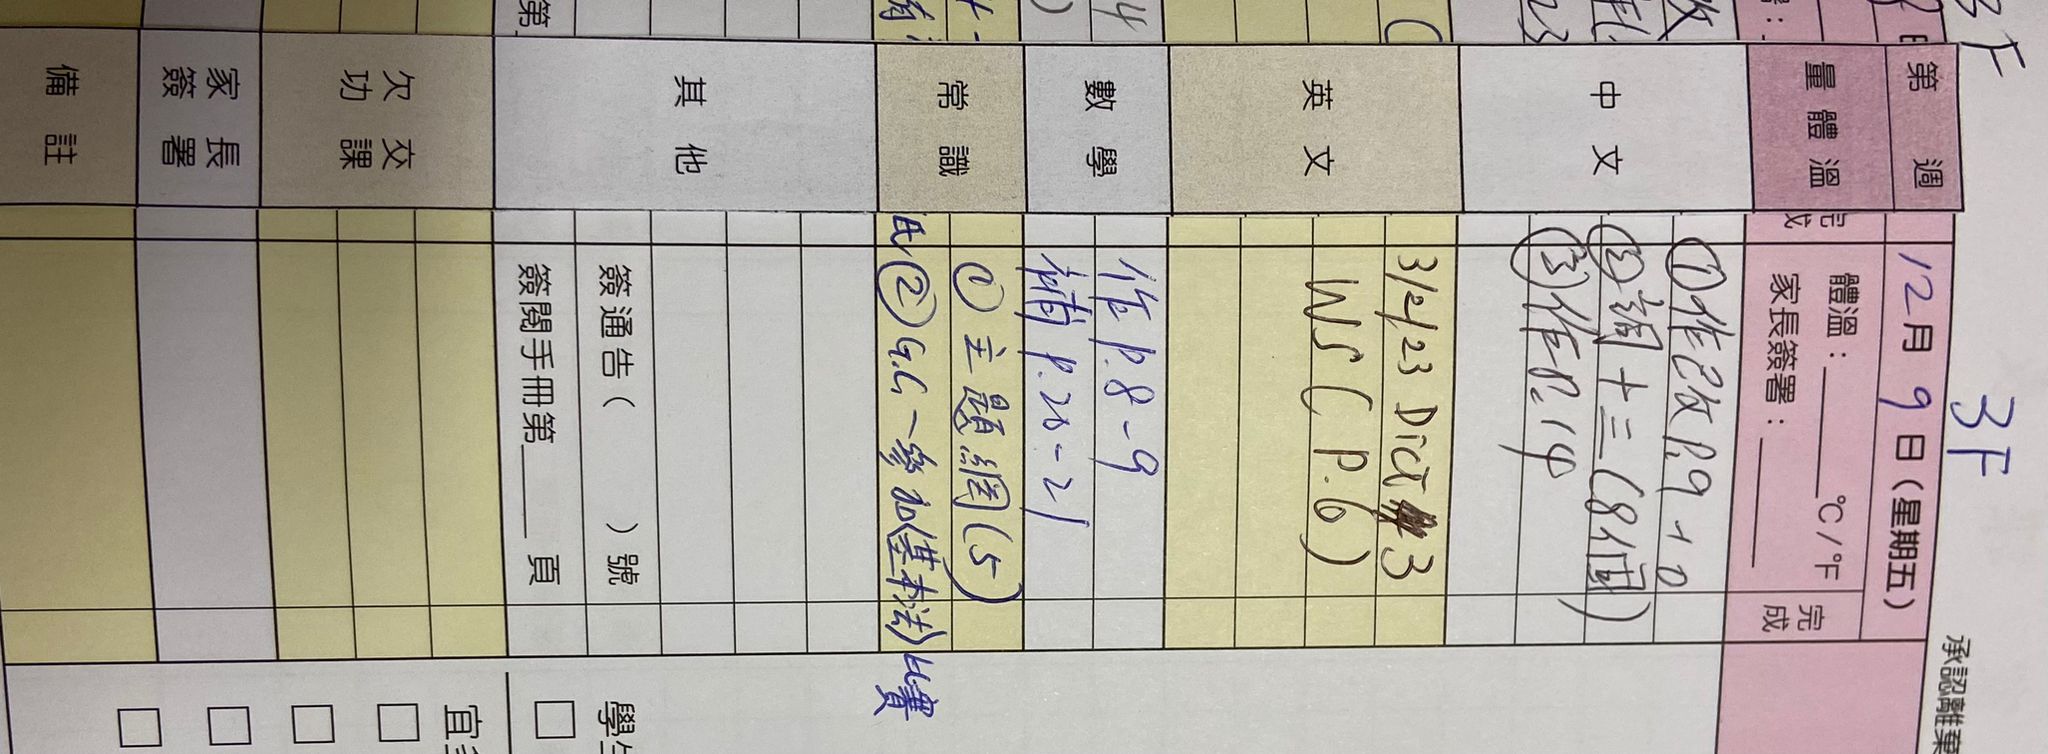 3F
3F
第 週
12月9日(星期五)
量體溫
完成
體溫：______°C/°F
家長簽署：______
完成
中文
①作已改P.9-10
②詞十三(8個)
③作P.14
英文
3/24/23 Dict 3
WS (P.6)
數學
作P.8-9
補P.20-21
常識
① 主題網(5)
② G.C一參加《基本法》比賽
其他
簽通告( )號
簽閱手冊第____頁
欠交功課
家長簽署
備註
承認離
學生
宜